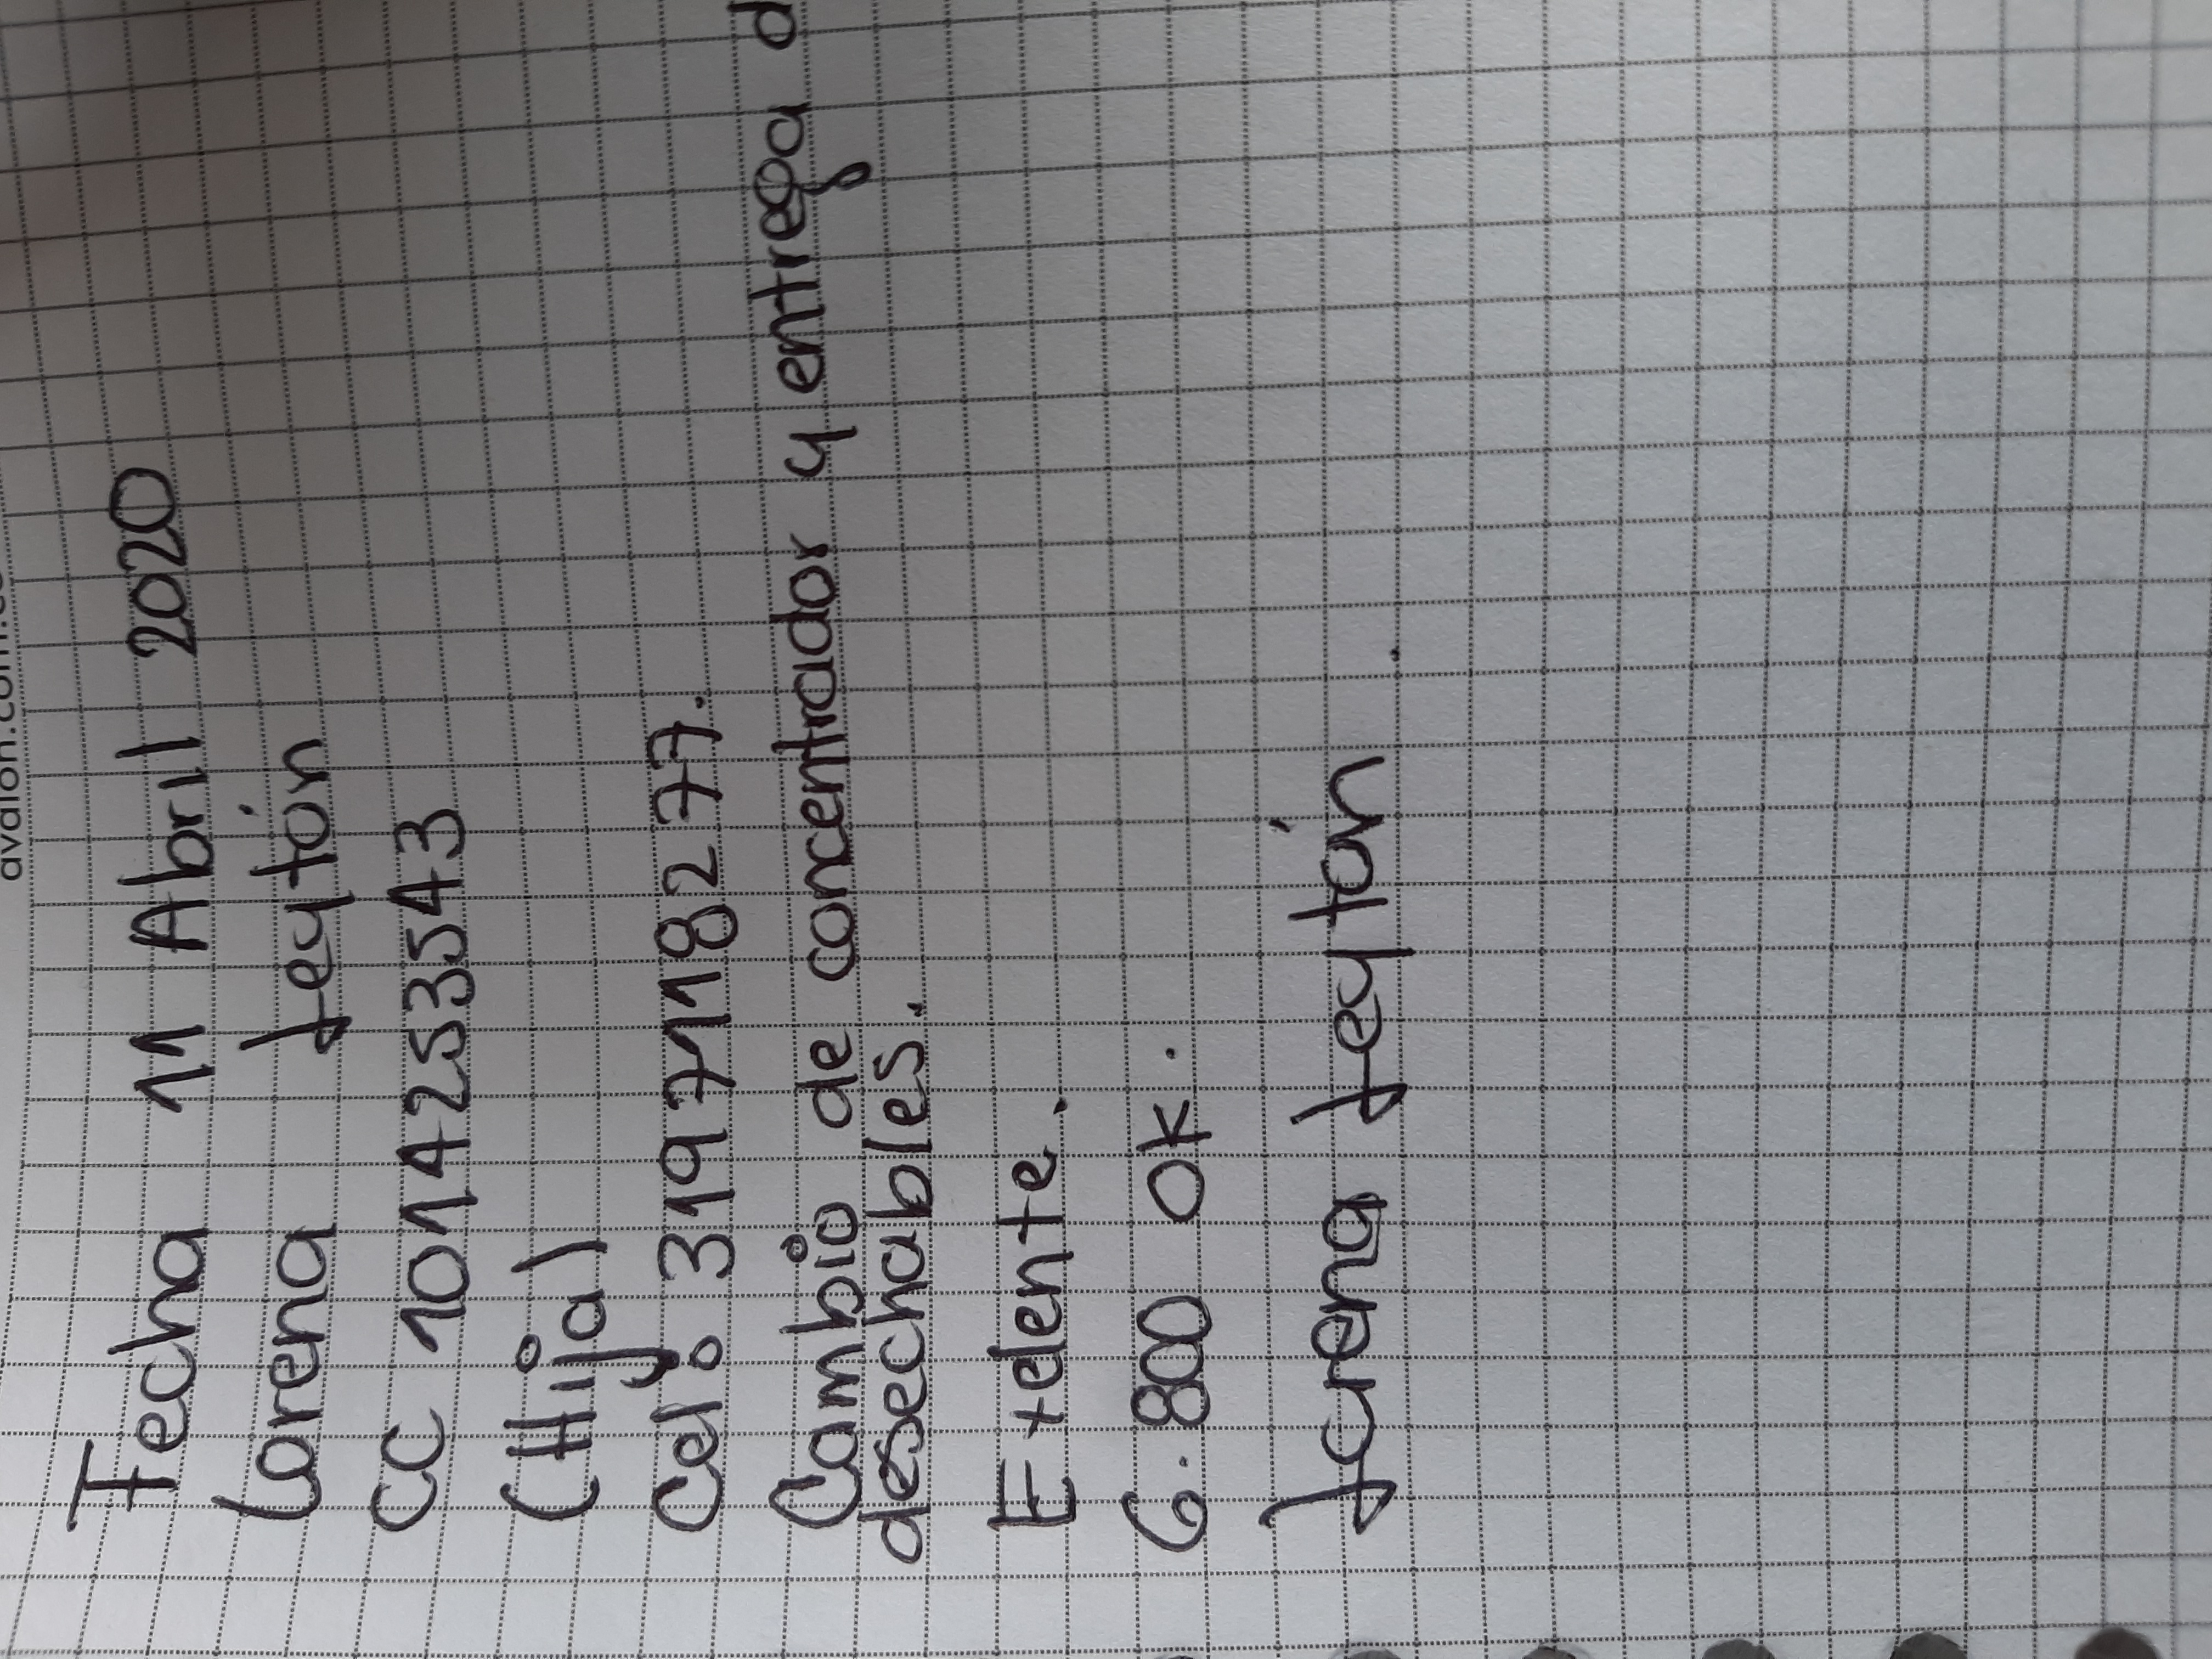 avalon.com.co
Fecha 11 Abril 2020
Lorena Leyton
CC 1014253543
(Hija)
Cel: 3197118277.
Cambio de concentrador y entrega d
desechables.
Exelente.
6.800 OK.
Lorena Leyton.